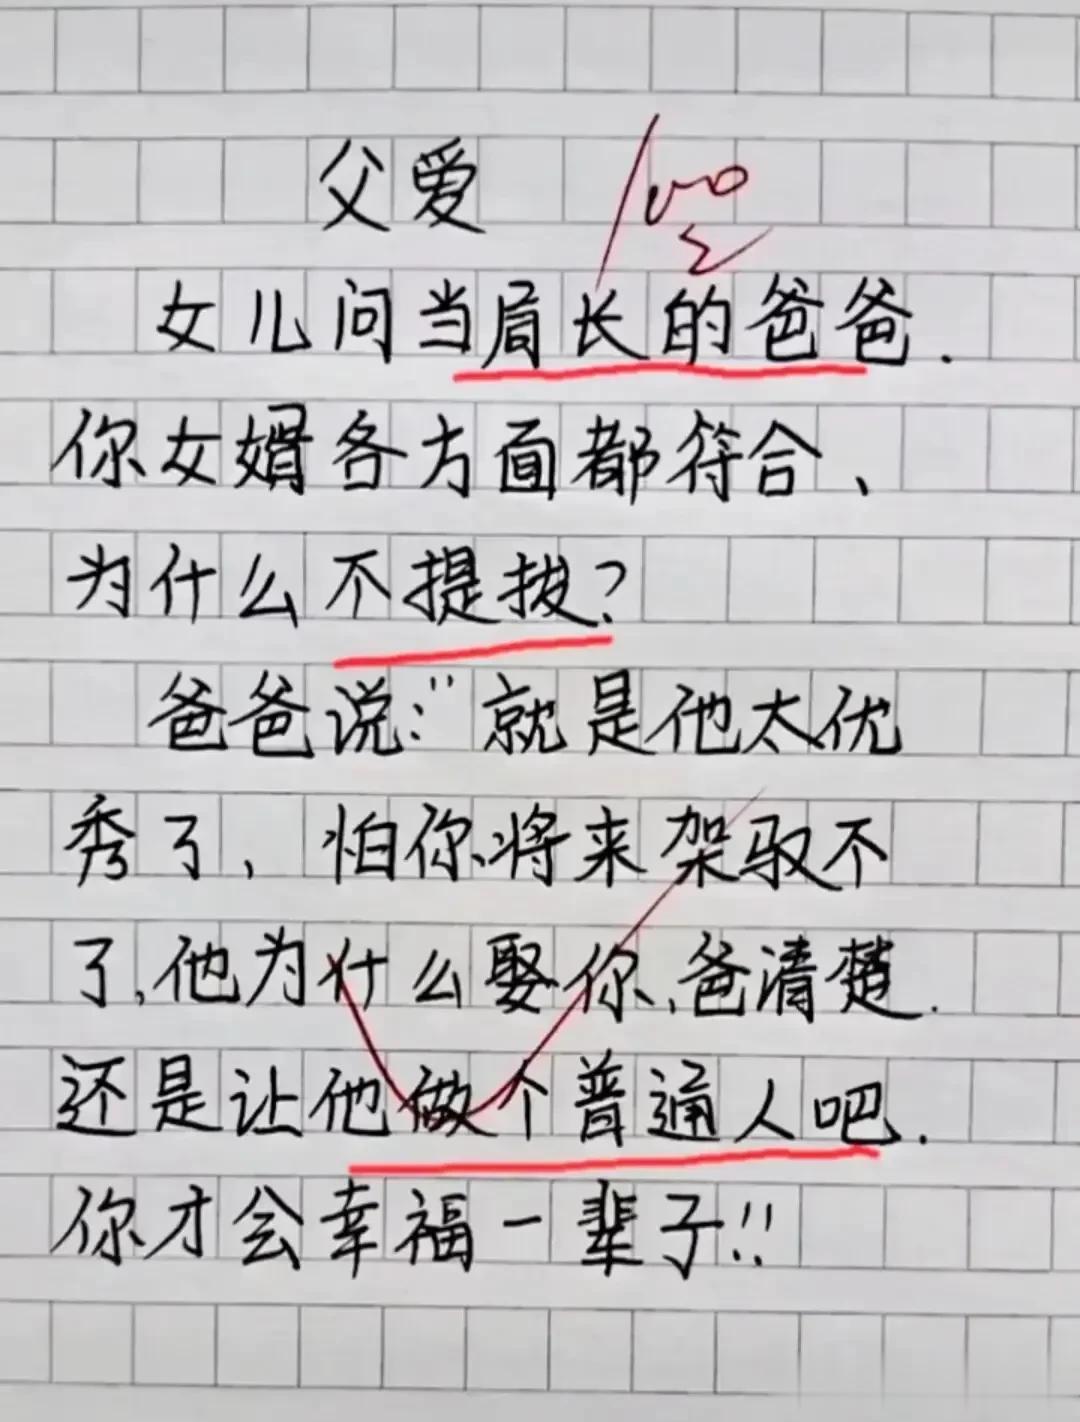 父爱 100
女儿问当局长的爸爸.
你女婿各方面都符合、
为什么不提拔?
爸爸说:"就是他太优
秀了,怕你将来架驭不
了,他为什么娶你,爸清楚.
还是让他做个普通人吧.
你才会幸福一辈子!!